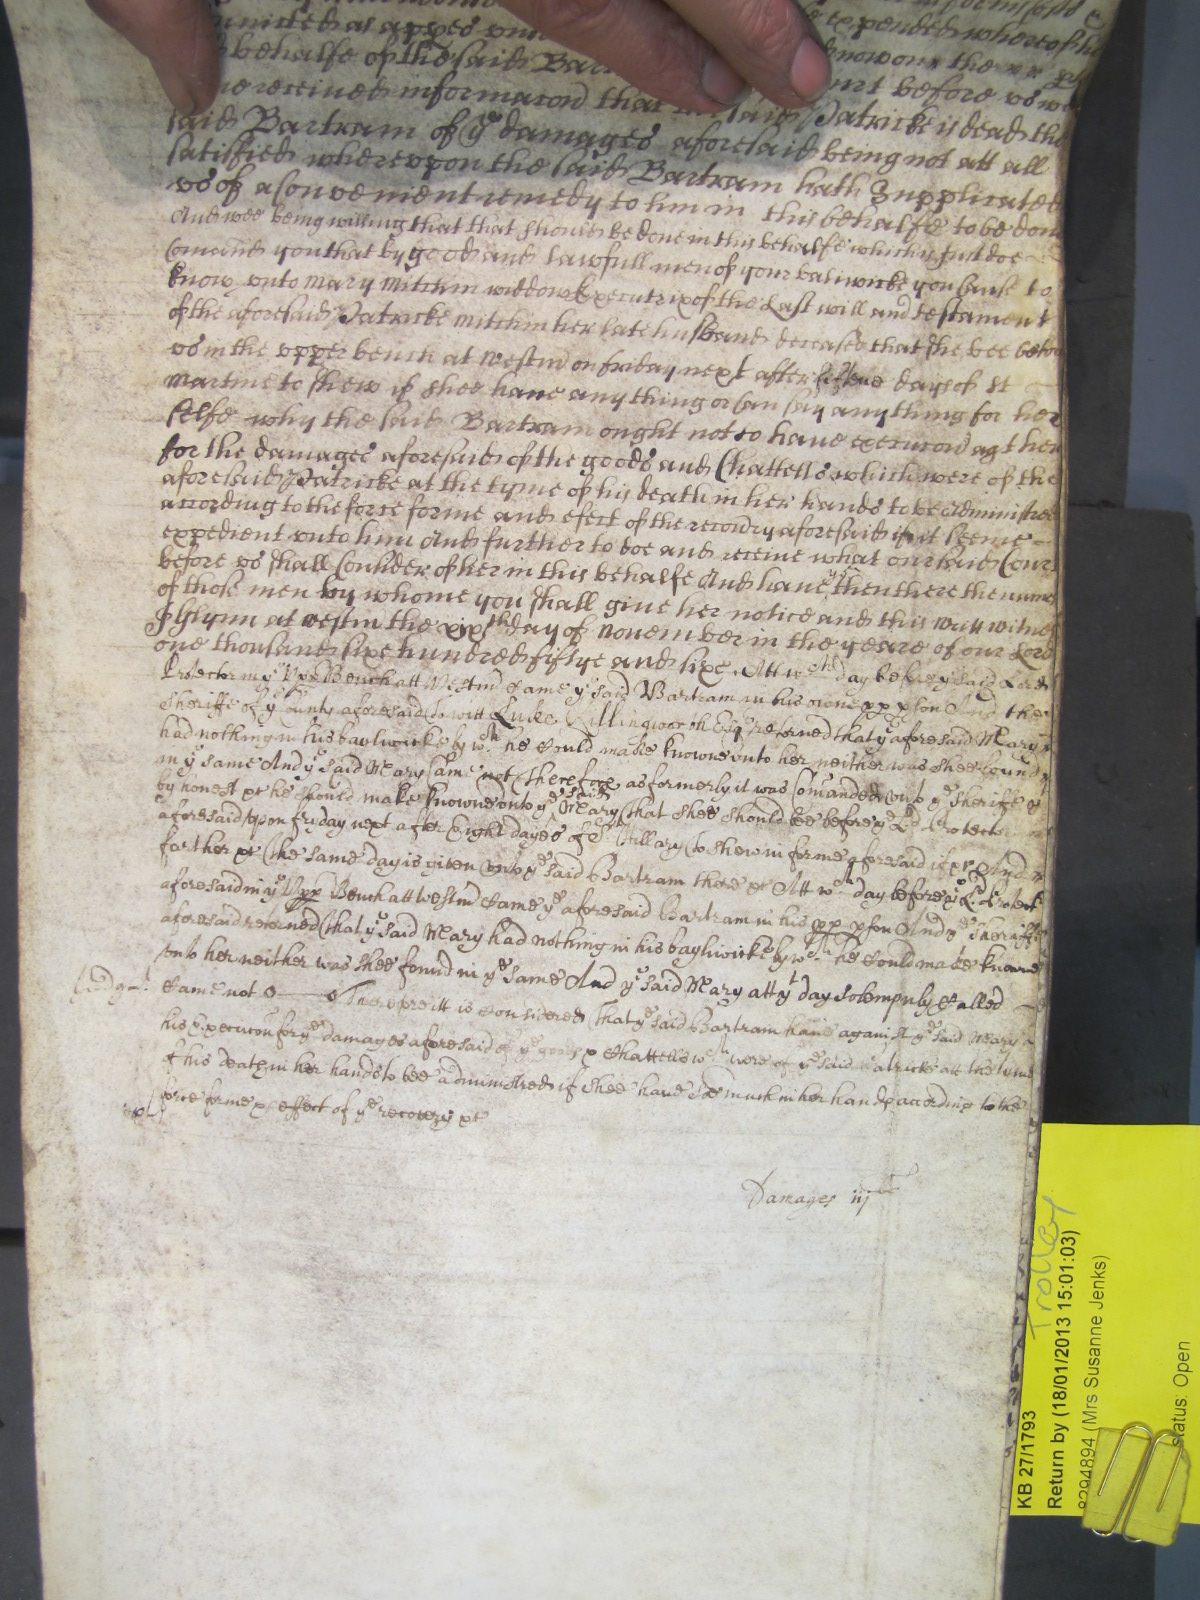 expended whereof he
behalfe of the said
before us we
have received informacon that the said Patricke is dead the
said Bartram of ye damages aforesaid being not att all
satisfied whereupon the said Bartram hath Supplicated
us of a Convenient remedy to him in this behalfe to be don
And wee being willing that that should be done in this behalfe which is Just doe
Comand you that by good and lawfull men of your bailiwicke you cause to
know unto Mary Mitchin widdow Executrix of the Last will and testament
of the aforesaid Patricke Mitchin her late husband deceased that she bee befor
us in the upper bench at Westm on friday next after fifteene days of St
Martine to shew if shee have any thing or Can say any thing for her
selfe why the said Bartram ought not to have execucon agt her
for the damages aforesaid of the goods and Chattells which were of the
aforesaid Patricke at the tyme of his death in her hands to be administred
according to the force forme and efect of the recovry aforesaid if it seeme
expedient unto him And further to doe and receive what our said Court
before us shall Consider of her in this behalfe And have you then there the names
of those men by whome you shall give her notice and this writt witnes
J Glynn at westm the xixth day of November in the yeare of our Lord
one thousand sixe hundred fiftye and sixe. Att wch day before ye said Lord
Protector in ye Upp Bench att Westm Came ye said Bartram in his owne pp pson And the
Sheriffe of ye County aforesaid to witt Luke Killingworth Esqr retorned that ye aforesaid Mary
had nothing in his bayliwicke by wch he Could make knowne unto her neither was shee found
in ye same And ye said Mary Came not Therefore as formerly it was Comanded unto ye Sheriffe yt
by honest &c he should make knowne unto ye said Mary that shee should bee before ye Ld Protector
aforesaid upon fryday next after Eight dayes of St Hillary to shew in forme aforesaid if &c And
farther &c the same day is given unto ye said Bartram there &c Att wch day before ye Ld Protect
aforesaid in ye Upp Bench att westm Came ye aforesaid Bartram in his pp pson And ye Sheriffe
aforesaid retorned that ye said Mary had nothing in his bayliwicke by wch he Could make knowne
unto her neither was shee found in ye same And ye said Mary att yt day solempnly Called
Judgmt. Came not Therefore itt is Considered that ye said Bartram have against ye said Mary
his Execucon for ye damages aforesaid of ye goods & Chattells wch were of ye said Patricke att the tyme
of his death in her hands to bee administred if shee have Soe much in her hands according to the
force forme & effect of ye recovery &c
Damages iij
Trolley
KB 27/1793
Return by (18/01/2013 15:01:03)
8294894 (Mrs Susanne Jenks)
status: Open